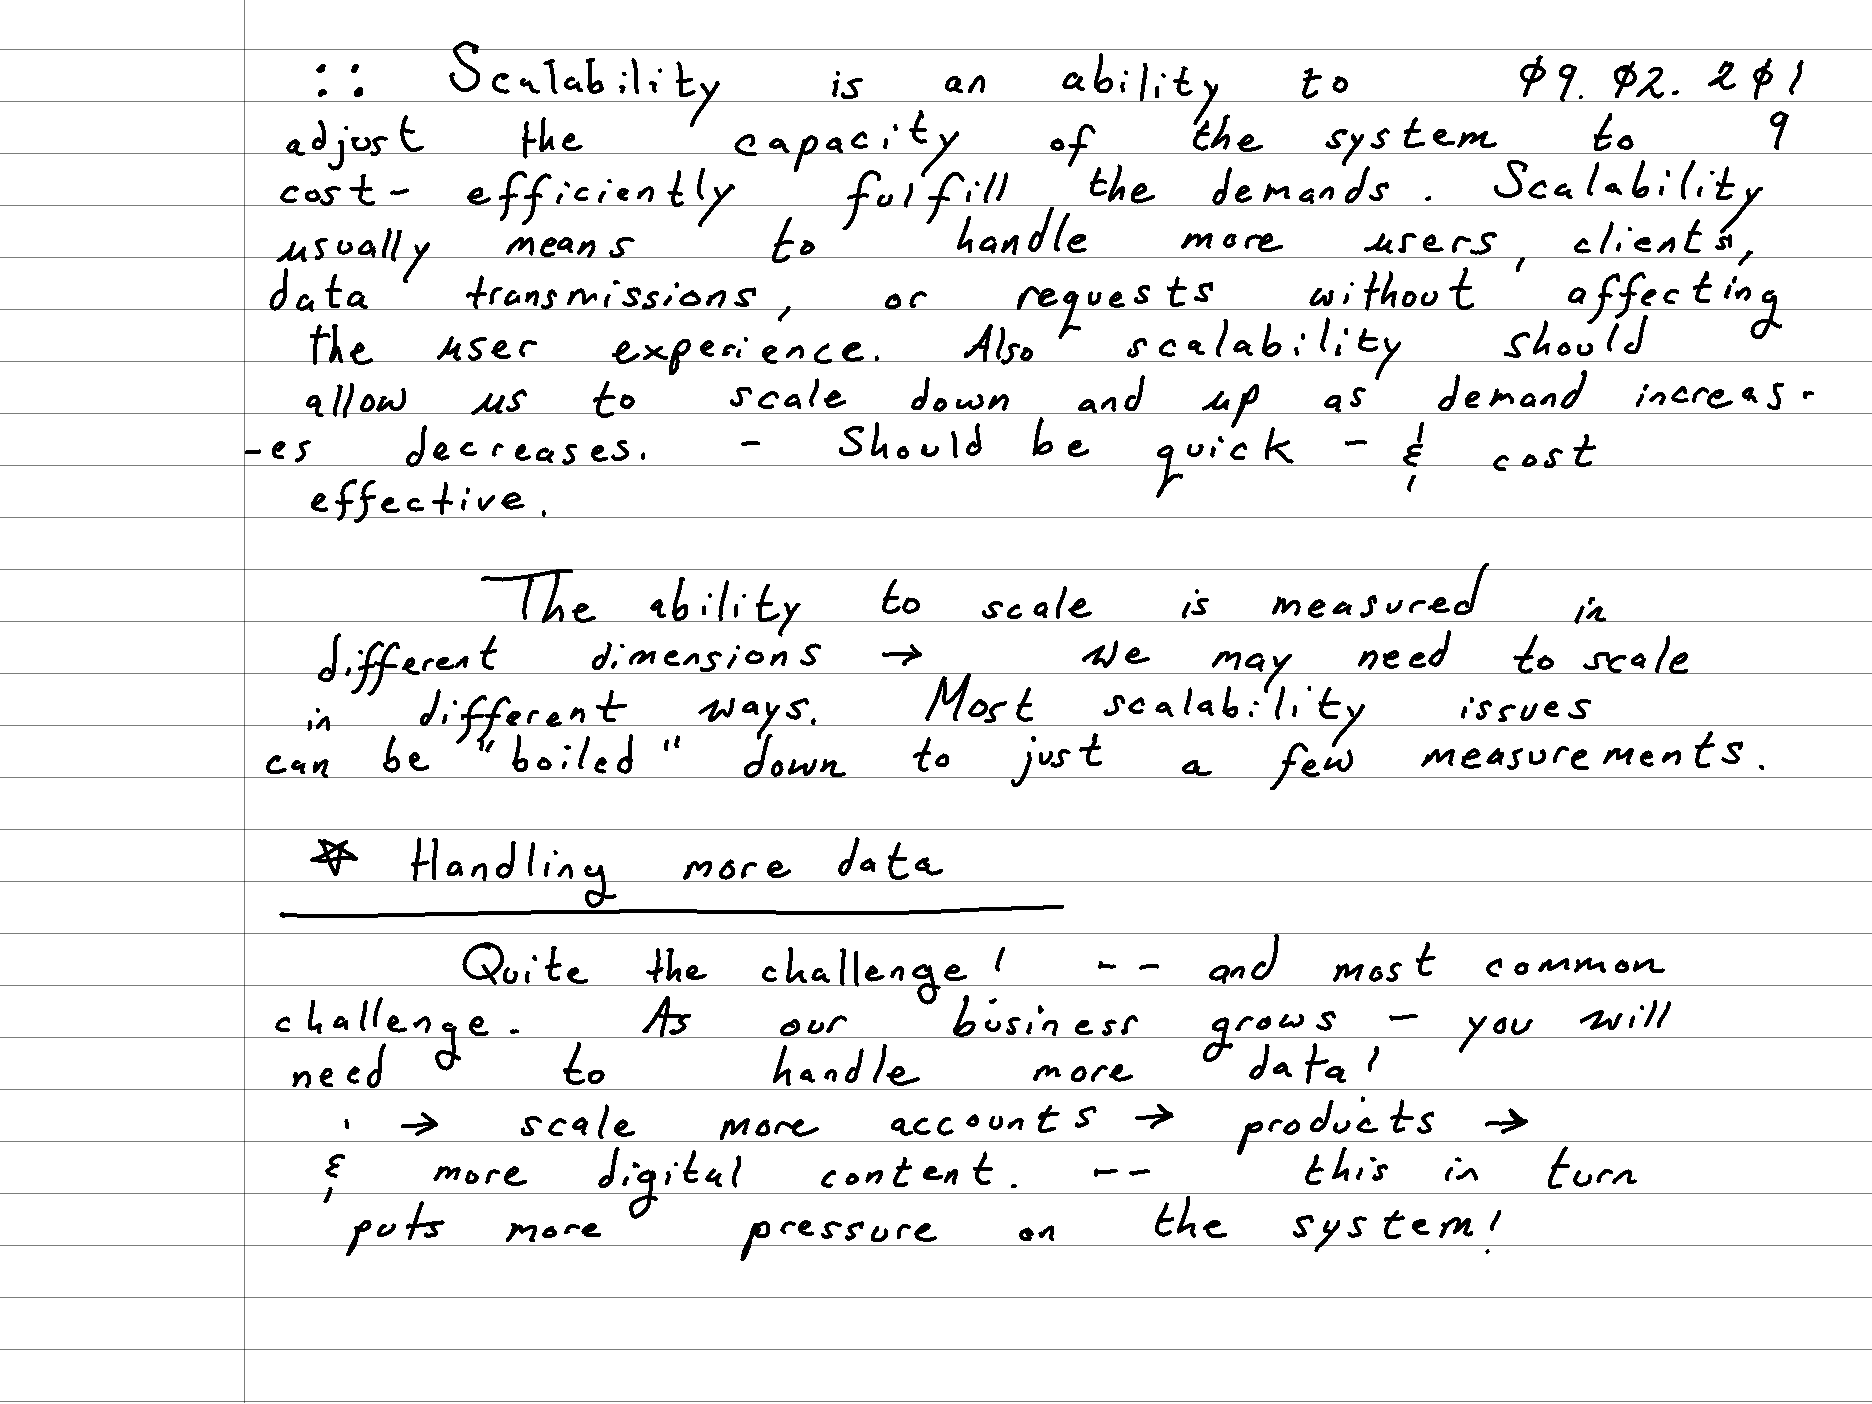 :: Scalability is an ability to 09.02.201
adjust the capacity of the system to 9
cost- efficiently fulfill the demands. Scalability
usually means to handle more users, clients,
data transmissions, or requests without affecting
the user experience. Also scalability should
allow us to scale down and up as demand increas-
-es decreases. - Should be quick - & cost
effective.
The ability to scale is measured in
different dimensions → We may need to scale
in different ways. Most scalability issues
can be "boiled" down to just a few measurements.
☆ Handling more data
Quite the challenge! -- and most common
challenge. As our business grows - you will
need to handle more data!
→ scale more accounts → products →
& more digital content. -- this in turn
puts more pressure on the system!